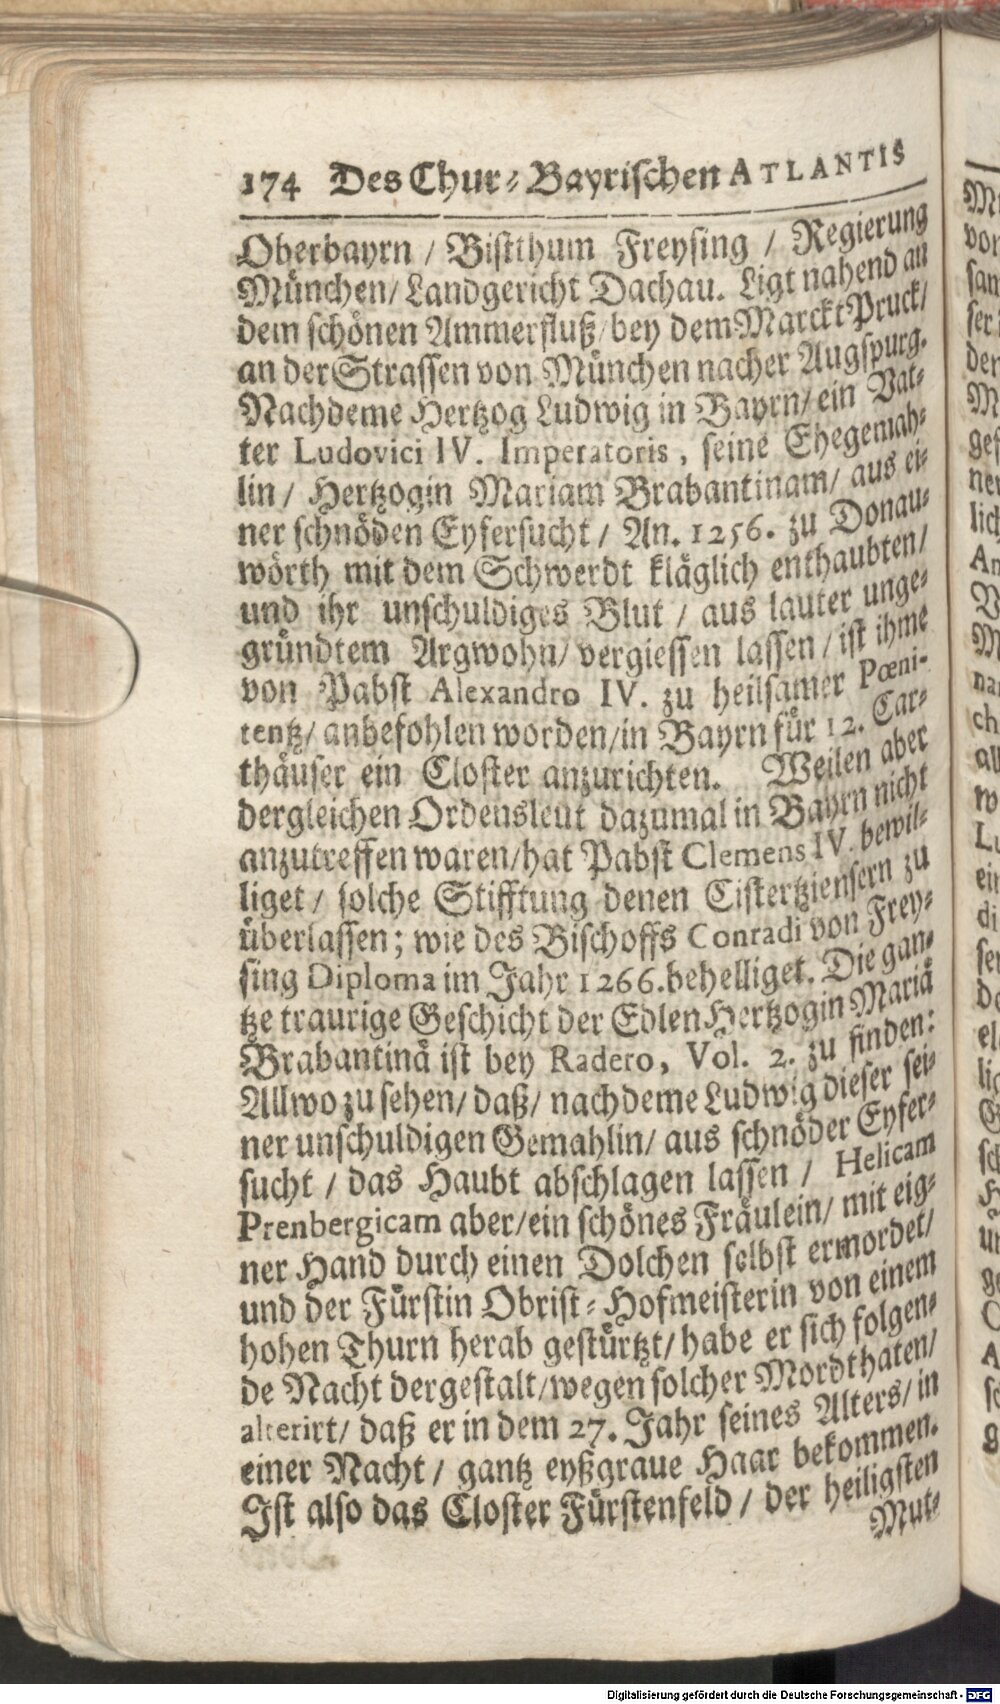 174 Des Chur-Bayrischen ATLANTIS
Oberbayrn / Bistthum Freysing / Regierung
München/ Landgericht Dachau. Ligt nahend an
dem schönen Ammerfluß/ bey dem Marckt Pruck/
an der Strassen von München nacher Augspurg.
Nachdeme Hertzog Ludwig in Bayrn/ ein Vat-
ter Ludovici IV. Imperatoris, seine Ehegemah-
lin / Hertzogin Mariam Brabantinam/ aus ei-
ner schnöden Eyfersucht / An. 1256. zu Donau-
wörth mit dem Schwerdt kläglich enthaubten/
und ihr unschuldiges Blut / aus lauter unge-
gründtem Argwohn/ vergiessen lassen / ist ihme
von Pabst Alexandro IV. zu heilsamer Pœni-
tentz/ anbefohlen worden/in Bayrn für 12. Car-
thäuser ein Closter anzurichten. Weilen aber
dergleichen Ordensleut dazumal in Bayrn nicht
anzutreffen waren/hat Pabst Clemens IV. bewil-
liget / solche Stifftung denen Cistertziensern zu
überlassen; wie des Bischoffs Conradi von Frey-
sing Diploma im Jahr 1266. behelliget. Die gan-
tze traurige Geschicht der Edlen Hertzogin Mariä
Brabantinä ist bey Radero, Vol. 2. zu finden:
Allwo zu sehen/ daß/ nachdeme Ludwig dieser sei-
ner unschuldigen Gemahlin/ aus schnöder Eyfer-
sucht / das Haubt abschlagen lassen / Helicam
Prenbergicam aber/ein schönes Fräulein/ mit eig-
ner Hand durch einen Dolchen selbst ermordet/
und der Fürstin Obrist-Hofmeisterin von einem
hohen Thurn herab gestürtzt/ habe er sich folgen-
de Nacht dergestalt/wegen solcher Mordthaten/
alterirt/ daß er in dem 27. Jahr seines Alters/ in
einer Nacht / gantz eyßgraue Haar bekommen.
Ist also das Closter Fürstenfeld / der heiligsten
Mut-
Digitalisierung gefördert durch die Deutsche Forschungsgemeinschaft - DFG